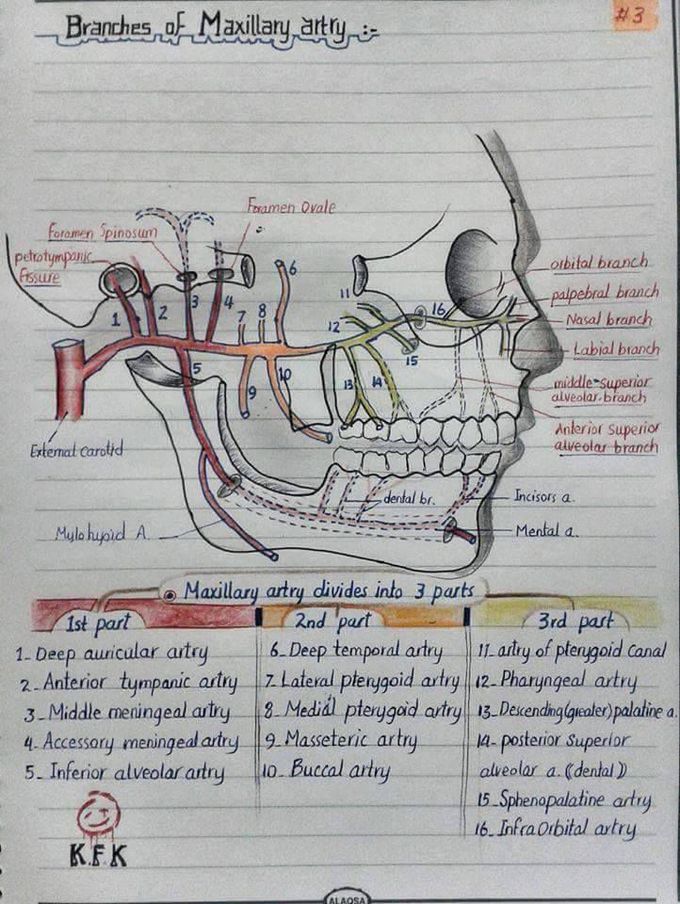 #3
Branches of Maxillary artry :-
Foramen Ovale
Foramen Spinosum
petrotympanic
fissure
orbital branch
palpebral branch
Nasal branch
Labial branch
middle-superior
alveolar branch
Anterior superior
alveolar branch
1
2
3
4
5
6
7
8
9
10
11
12
13
14
15
16
External carotid
Mylohyoid A.
dental br.
Incisors a.
Mental a.
Maxillary artry divides into 3 parts
1st part
1- Deep auricular artry
2- Anterior tympanic artry
3- Middle meningeal artry
4- Accessory meningeal artry
5- Inferior alveolar artry
2nd part
6- Deep temporal artry
7- Lateral pterygoid artry
8- Medial pterygoid artry
9- Masseteric artry
10- Buccal artry
3rd part
11- artry of pterygoid canal
12- Pharyngeal artry
13- Descending (greater) palatine a.
14- posterior superior
alveolar a. ((dental))
15- Sphenopalatine artry
16- Infra Orbital artry
K.F.K
ALAQSA